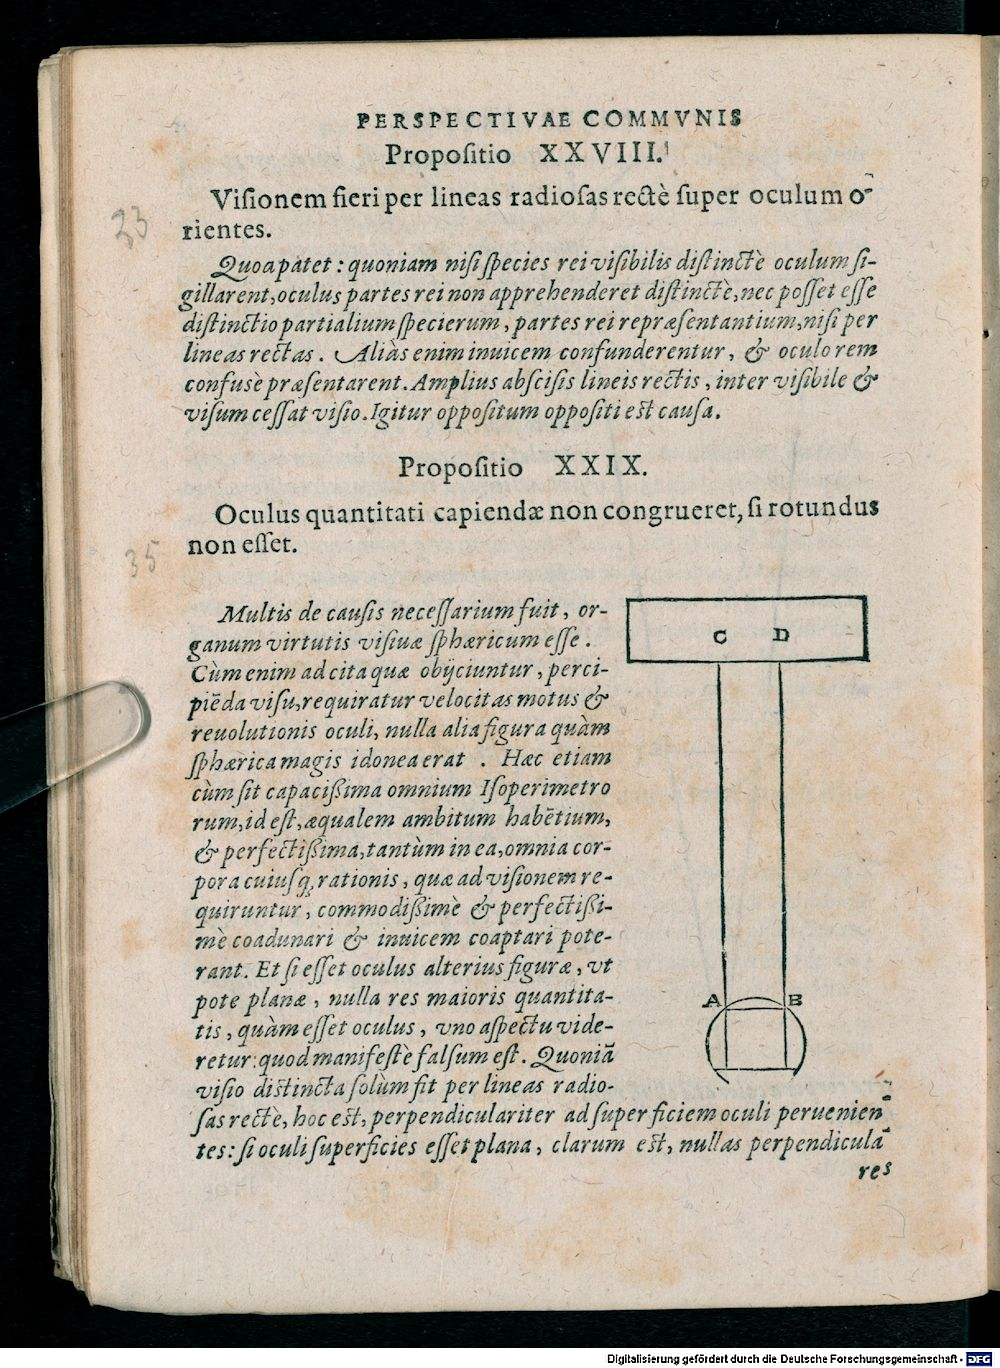 PERSPECTIVAE COMMVNIS
Propoſitio XXVIII.
Viſionem fieri per lineas radioſas rectè ſuper oculum o-
rientes.
33
Quoapatet: quoniam niſi ſpecies rei viſibilis diſtinctè oculum ſi-
gillarent, oculus partes rei non apprehenderet diſtinctè, nec poſſet eſſe
diſtinctio partialium ſpecierum, partes rei repræſentantium, niſi per
lineas rectas. Aliàs enim inuicem confunderentur, & oculo rem
confusè præſentarent. Amplius abſciſis lineis rectis, inter viſibile &
viſum ceſſat viſio. Igitur oppoſitum oppoſiti eſt cauſa.
Propoſitio XXIX.
Oculus quantitati capiendæ non congrueret, ſi rotundus
non eſſet.
35
Multis de cauſis neceſſarium fuit, or-
ganum virtutis viſiuæ ſphæricum eſſe.
Cùm enim ad cita quæ obijciuntur, perci-
piēda viſu, requiratur velocitas motus &
reuolutionis oculi, nulla alia figura quàm
ſphærica magis idonea erat. Hæc etiam
cùm ſit capacißima omnium Iſoperimetro
rum, id eſt, æqualem ambitum habētium,
& perfectißima, tantùm in ea, omnia cor-
pora cuiuſq; rationis, quæ ad viſionem re-
quiruntur, commodißimè & perfectißi-
mè coadunari & inuicem coaptari pote-
rant. Et ſi eſſet oculus alterius figuræ, vt
pote planæ, nulla res maioris quantita-
tis, quàm eſſet oculus, vno aſpectu vide-
retur: quod manifeſtè falſum eſt. Quoniã
viſio diſtincta ſolùm fit per lineas radio-
ſas rectè, hoc eſt, perpendiculariter ad ſuperficiem oculi peruenien-
tes: ſi oculi ſuperficies eſſet plana, clarum eſt, nullas perpendicula-
res
C D
A B
Digitalisierung gefördert durch die Deutsche Forschungsgemeinschaft - DFG